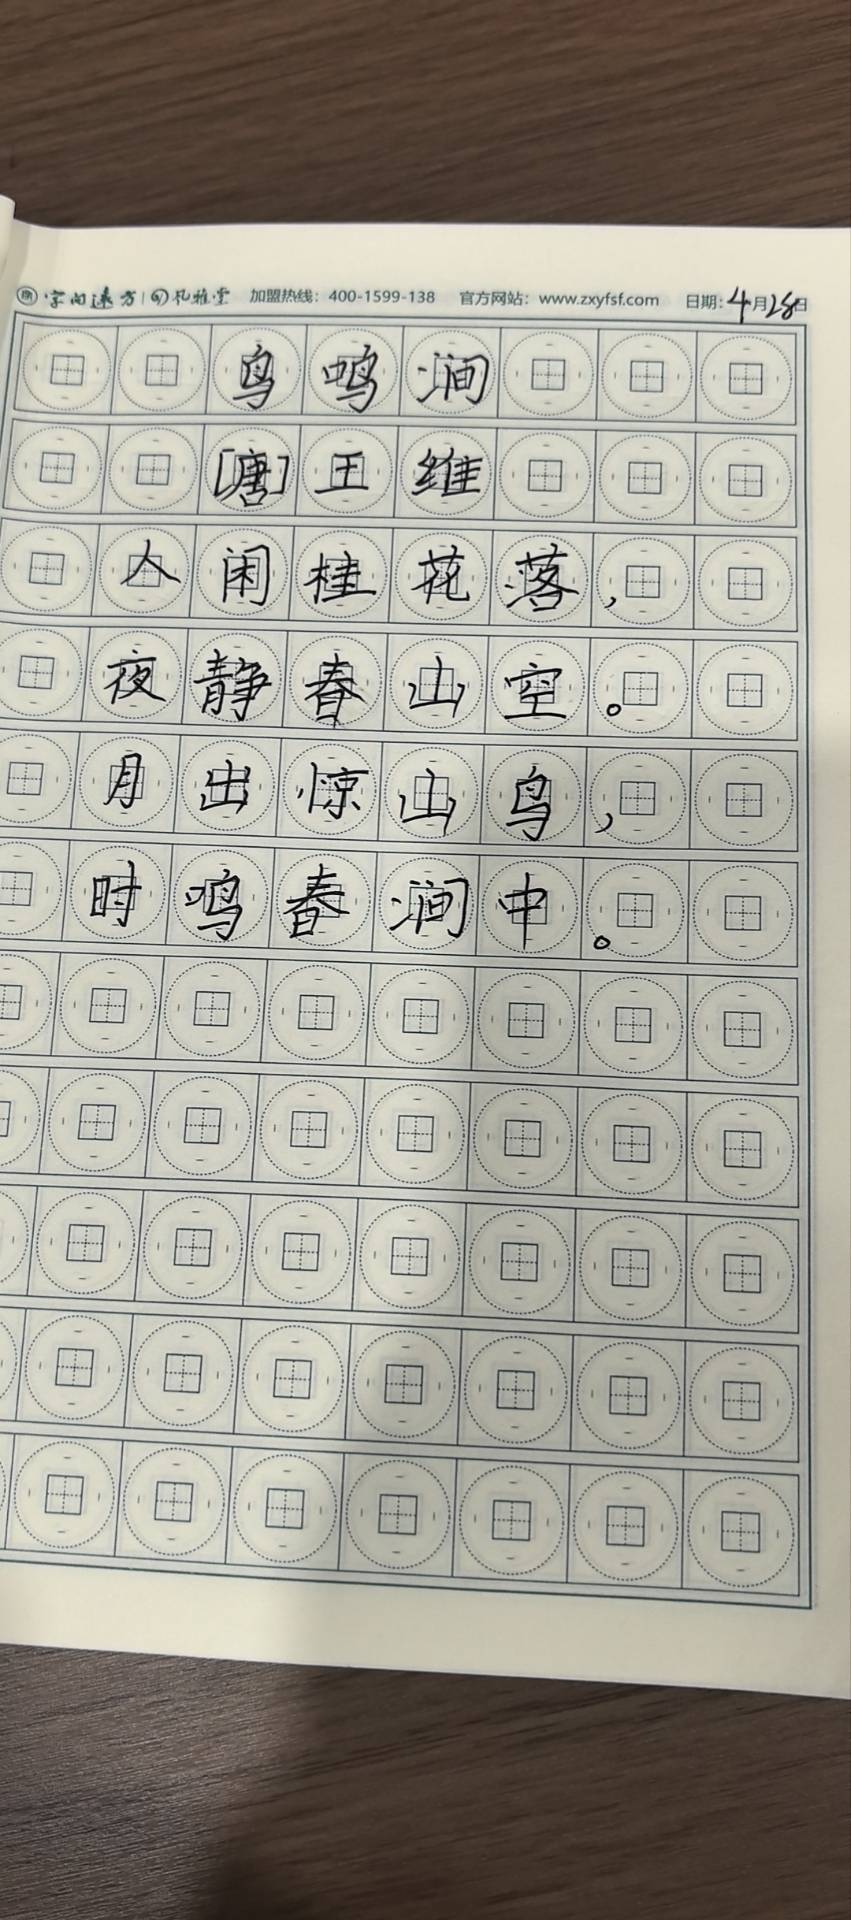 字向远方 风雅堂 加盟热线：400-1599-138 官方网站：www.zxyfsf.com 日期：4月28日
鸟鸣涧
[唐]王维
人闲桂花落，
夜静春山空。
月出惊山鸟，
时鸣春涧中。